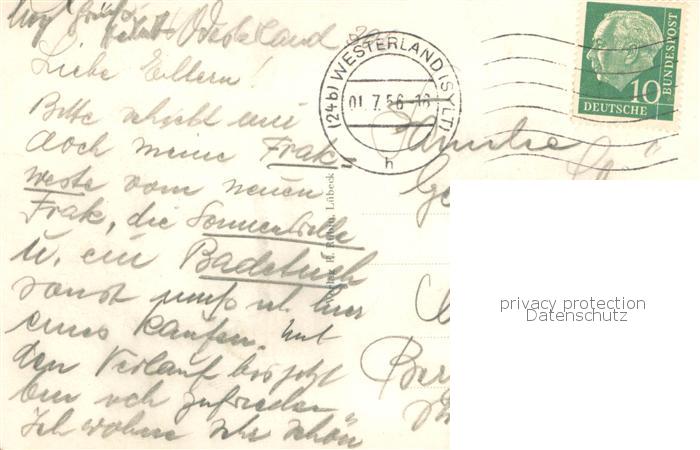 Westerland
Liebe Eltern!
Bitte schickt mir
doch meine Frak
weste vom neuen
Frak, die Sonnenbrille
u. ein Badetuch
sonst muß ich hier
eines kaufen. Mit
den Verlauf bis jetzt
bin ich zufrieden
Ich wohne sehr schön
(24b) WESTERLAND (SYLT)
01.7.56-18
h
DEUTSCHE
BUNDESPOST
10
Familie
Verlag H. Rubin, Lübeck
privacy protection
Datenschutz